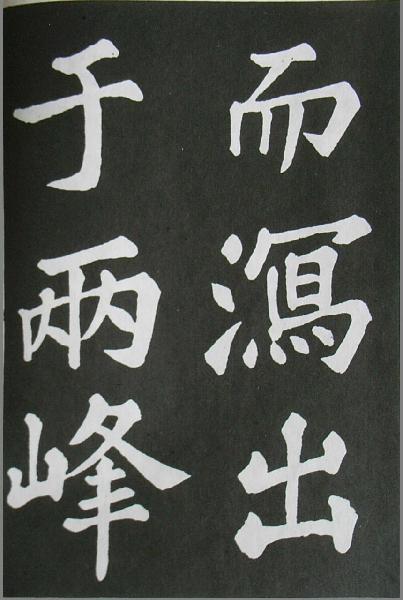 而瀉出
于兩峰